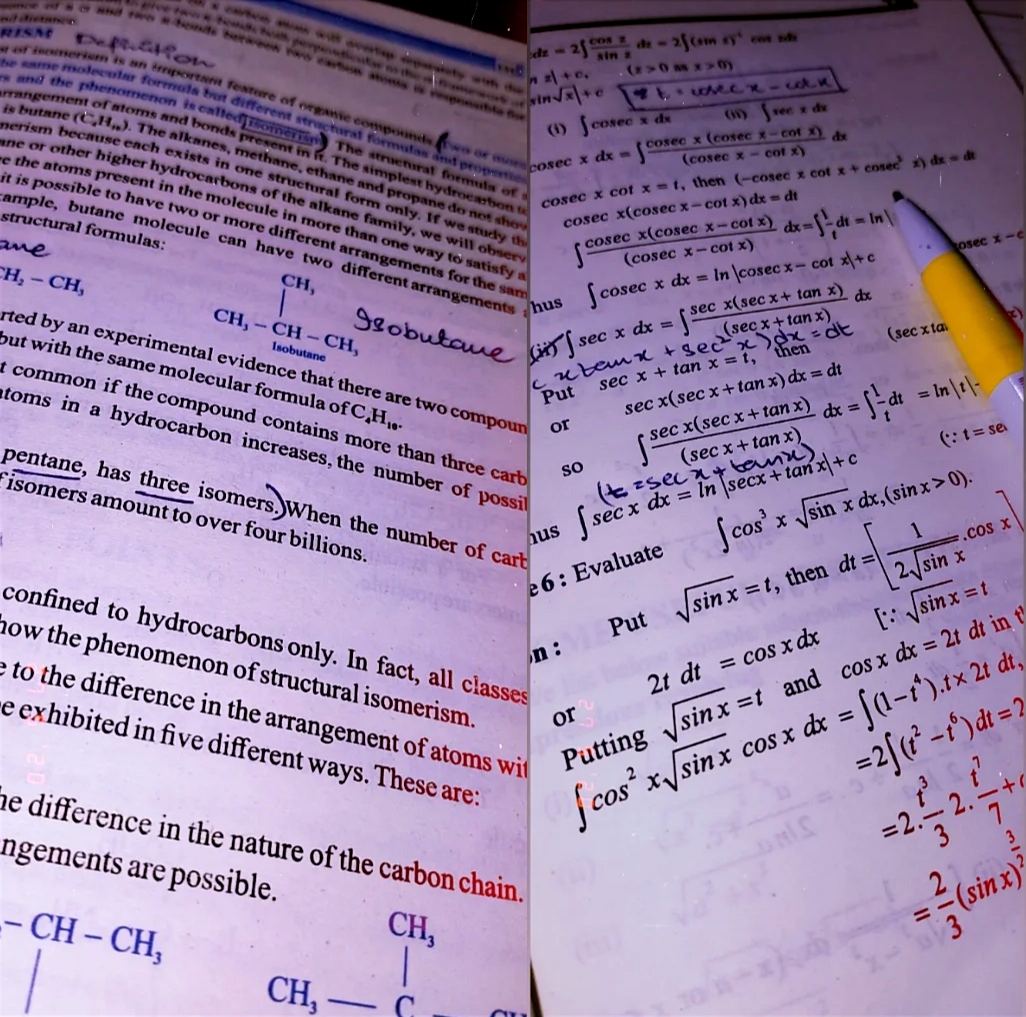 RISM Definition
of isomerism is an important feature of organic compounds (Two or more
the same molecular formula but different structural formulas and properties
and the phenomenon is called isomerism) The structural formula of a
arrangement of atoms and bonds present in it. The simplest hydrocarbon to
is butane (C₄H₁₀). The alkanes, methane, ethane and propane do not show
merism because each exists in one structural form only. If we study the
ane or other higher hydrocarbons of the alkane family, we will observ
e the atoms present in the molecule in more than one way to satisfy a
it is possible to have two or more different arrangements for the sam
ample, butane molecule can have two different arrangements
structural formulas:
ane
CH₃
CH₂ – CH₃
CH₃ – CH – CH₃ Isobutane
Isobutane
rted by an experimental evidence that there are two compoun
but with the same molecular formula of C₄H₁₀.
t common if the compound contains more than three carb
toms in a hydrocarbon increases, the number of possil
pentane, has three isomers.) When the number of cart
f isomers amount to over four billions.
confined to hydrocarbons only. In fact, all classes
how the phenomenon of structural isomerism.
e to the difference in the arrangement of atoms wit
e exhibited in five different ways. These are:
he difference in the nature of the carbon chain.
ngements are possible.
– CH – CH₃
CH₃
CH₃ — C
dz = 2∫ cos z / sin z dz = 2∫(sin z)⁻¹ cos zdz
n z| + c, (z > 0 as x > 0)
sin√x| + c t = cosec x – cot x
(i) ∫cosec x dx (ii) ∫sec x dx
cosec x dx = ∫ cosec x (cosec x – cot x) / (cosec x – cot x) dx
cosec x cot x = t, then (–cosec x cot x + cosec² x) dx = dt
cosec x(cosec x – cot x) dx = dt
∫ cosec x(cosec x – cot x) / (cosec x – cot x) dx = ∫ 1/t dt = ln|
hus ∫cosec x dx = ln |cosec x – cot x| + c
osec x – c
(ii) ∫sec x dx = ∫ sec x(sec x + tan x) / (sec x + tan x) dx
c x tan x + sec² x) dx = dt
Put sec x + tan x = t, then (sec x ta
or sec x(sec x + tan x) dx = dt
so ∫ sec x(sec x + tan x) / (sec x + tan x) dx = ∫ 1/t dt = ln |t|
(t = sec x + tan x) (∵ t = se
hus ∫sec x dx = ln |secx + tan x| + c
e 6 : Evaluate ∫cos³ x √sin x dx, (sin x > 0).
n : Put √sin x = t, then dt = [ 1 / 2√sin x . cos x ]
or 2t dt = cos x dx [∵ √sin x = t
Putting √sin x = t and cos x dx = 2t dt in t
∫cos² x √sin x cos x dx = ∫(1 – t⁴).t × 2t dt,
= 2∫(t² – t⁶) dt = 2
= 2. t³/3 2. t⁷/7 + c
= 2/3 (sin x)^3/2